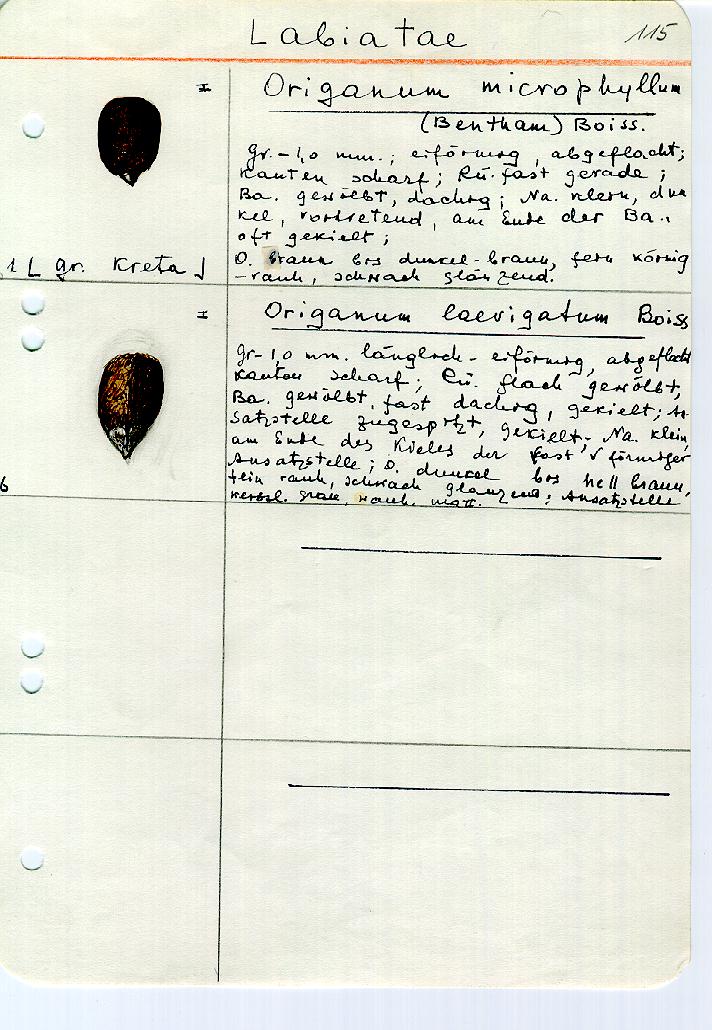 Labiatae 115
Origanum microphyllum
(Bentham) Boiss.
Gr. – 1,0 mm.; eiförmig, abgeflacht;
Kanten scharf; Rü. fast gerade;
Ba. gewölbt, dachig; Na. klein, dun
kel, vortretend, am Ende der Ba.,
oft gekielt;
O. braun bis dunkel-braun, fein körnig
-rauh, schwach glänzend.
1 L gr. Kreta
Origanum laevigatum Boiss
Gr – 1,0 mm. länglich-eiförmig, abgeflacht
Kanten scharf; Rü. flach gewölbt,
Ba. gewölbt, fast dachig, gekielt; An
satzstelle zugespitzt, gekielt; Na. klein,
am Ende des Kieles der fast V förmiger
Ansatzstelle; O. dunkel bis hell braun,
fein rauh, schwach glänzend; Ansatzstelle
rauh, matt.
6